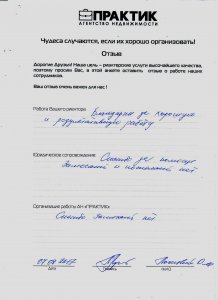 ПРАКТИК
АГЕНТСТВО НЕДВИЖИМОСТИ
Чудеса случаются, если их хорошо организовать!
Отзыв
Дорогие Друзья! Наша цель - риэлторские услуги высочайшего качества,
поэтому просим Вас, в этой анкете оставить отзыв о работе наших
сотрудников.
Ваш отзыв очень важен для нас!
Работа Вашего риэлтора: Благодарим за хорошую
и результативную работу
Юридическое сопровождение: Спасибо за помощь
Замечаний и пожеланий нет
Организация работы АН «ПРАКТИК»:
Спасибо Замечаний нет
дата
подпись